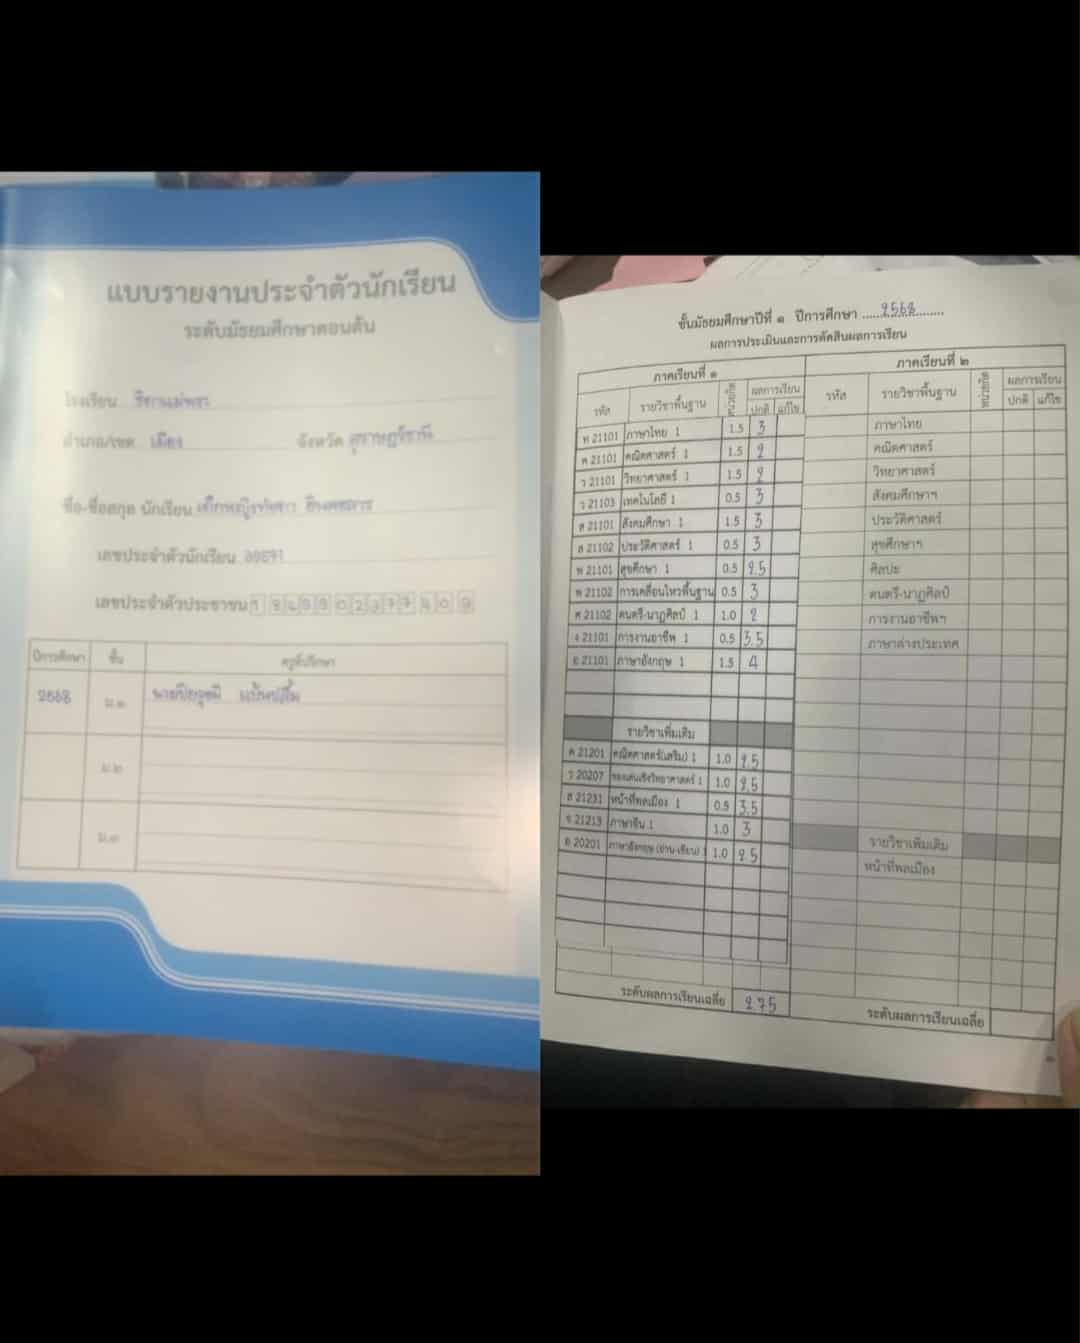 แบบรายงานประจำตัวนักเรียน
ระดับมัธยมศึกษาตอนต้น
โรงเรียน
อำเภอ/เขต เมือง จังหวัด สุราษฎร์ธานี
ชื่อ-ชื่อสกุล นักเรียน เด็กหญิง
เลขประจำตัวนักเรียน
เลขประจำตัวประชาชน
ปีการศึกษา ชั้น ครูที่ปรึกษา
2568 ม.๑
ม.๒
ม.๓
ชั้นมัธยมศึกษาปีที่ ๑ ปีการศึกษา ......2568........
ผลการประเมินและการตัดสินผลการเรียน
ภาคเรียนที่ ๑
รหัส รายวิชาพื้นฐาน หน่วยกิต ผลการเรียน
ปกติ แก้ไข
ท 21101 ภาษาไทย 1 1.5 3
ค 21101 คณิตศาสตร์ 1 1.5 2
ว 21101 วิทยาศาสตร์ 1 1.5 2
ว 21103 เทคโนโลยี 1 0.5 3
ส 21101 สังคมศึกษา 1 1.5 3
ส 21102 ประวัติศาสตร์ 1 0.5 3
พ 21101 สุขศึกษา 1 0.5 2.5
พ 21102 การเคลื่อนไหวพื้นฐาน 0.5 3
ศ 21102 ดนตรี-นาฏศิลป์ 1 1.0 2
ง 21101 การงานอาชีพ 1 0.5 3.5
อ 21101 ภาษาอังกฤษ 1 1.5 4
รายวิชาเพิ่มเติม
ค 21201 คณิตศาสตร์(เสริม) 1 1.0 2.5
ว 20207 ของเล่นเชิงวิทยาศาสตร์ 1 1.0 2.5
ส 21231 หน้าที่พลเมือง 1 0.5 3.5
จ 21213 ภาษาจีน 1 1.0 3
อ 20201 ภาษาอังกฤษ (อ่าน-เขียน) 1 1.0 2.5
ระดับผลการเรียนเฉลี่ย 2.75
ภาคเรียนที่ ๒
รหัส รายวิชาพื้นฐาน หน่วยกิต ผลการเรียน
ปกติ แก้ไข
ภาษาไทย
คณิตศาสตร์
วิทยาศาสตร์
สังคมศึกษาฯ
ประวัติศาสตร์
สุขศึกษาฯ
ศิลปะ
ดนตรี-นาฏศิลป์
การงานอาชีพฯ
ภาษาต่างประเทศ
รายวิชาเพิ่มเติม
หน้าที่พลเมือง
ระดับผลการเรียนเฉลี่ย